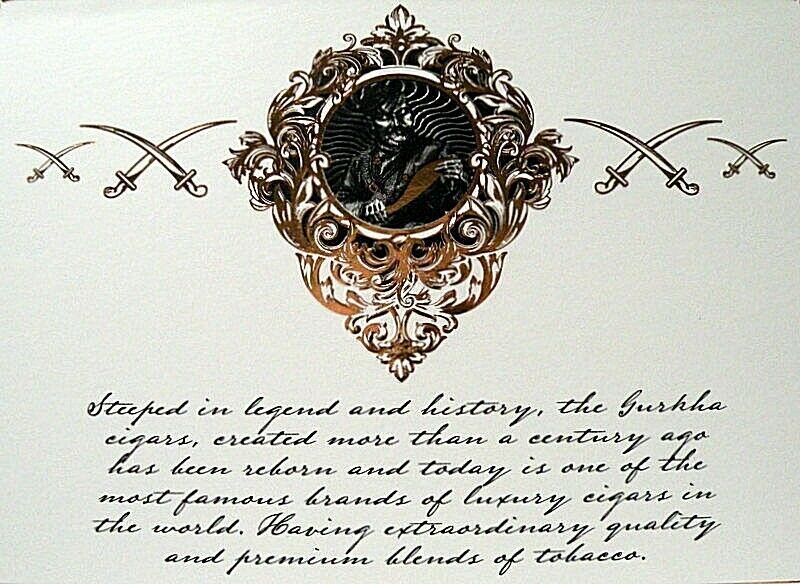 Steeped in legend and history, the Gurkha
cigars, created more than a century ago
has been reborn and today is one of the
most famous brands of luxury cigars in
the world. Having extraordinary quality
and premium blends of tobacco.